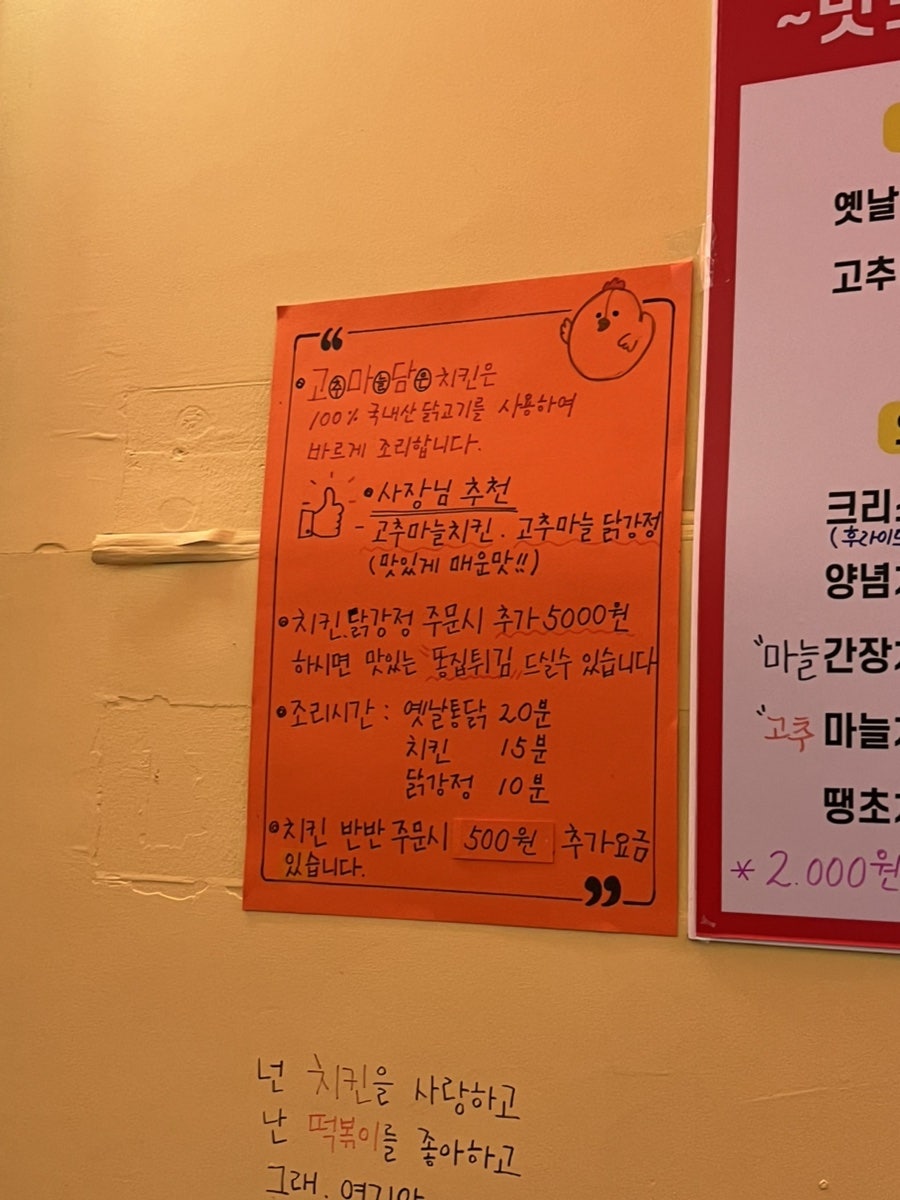 고추마늘담은 치킨은
100% 국내산 닭고기를 사용하여
바르게 조리합니다.
사장님 추천
- 고추마늘치킨. 고추마늘 닭강정
(맛있게 매운맛!!)
치킨, 닭강정 주문시 추가 5000원
하시면 맛있는 "똥집튀김" 드실수 있습니다
조리시간 : 옛날통닭 20분
치킨 15분
닭강정 10분
치킨 반반 주문시 500원 추가요금
있습니다.
옛날
고추
크리
(후라이드
양념
"마늘 간장
"고추 마늘
땡초
* 2.000원
넌 치킨을 사랑하고
난 떡볶이를 좋아하고
그래.